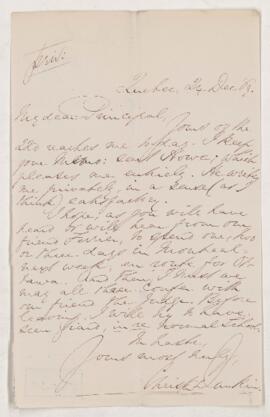 Quebec, 24 Dec/69.
My dear Principal,
Yours of the
22d reaches me to-day. I keep
your Memo: Howe; which
pleases me entirely. He writes
me privately, in a sense (as I
think) satisfactory.
I hope, as you will have
heard or will hear from our
friend Ferrier, to spend one, two
or three days in Montreal
next week, en route for Ot-
tawa. And then, I trust we
may all three confer with
our friend the Judge. Before
leaving, I will try to have
seen Giard, in re Normal School.
In haste,
Yours most truly,
Christ Dunkin